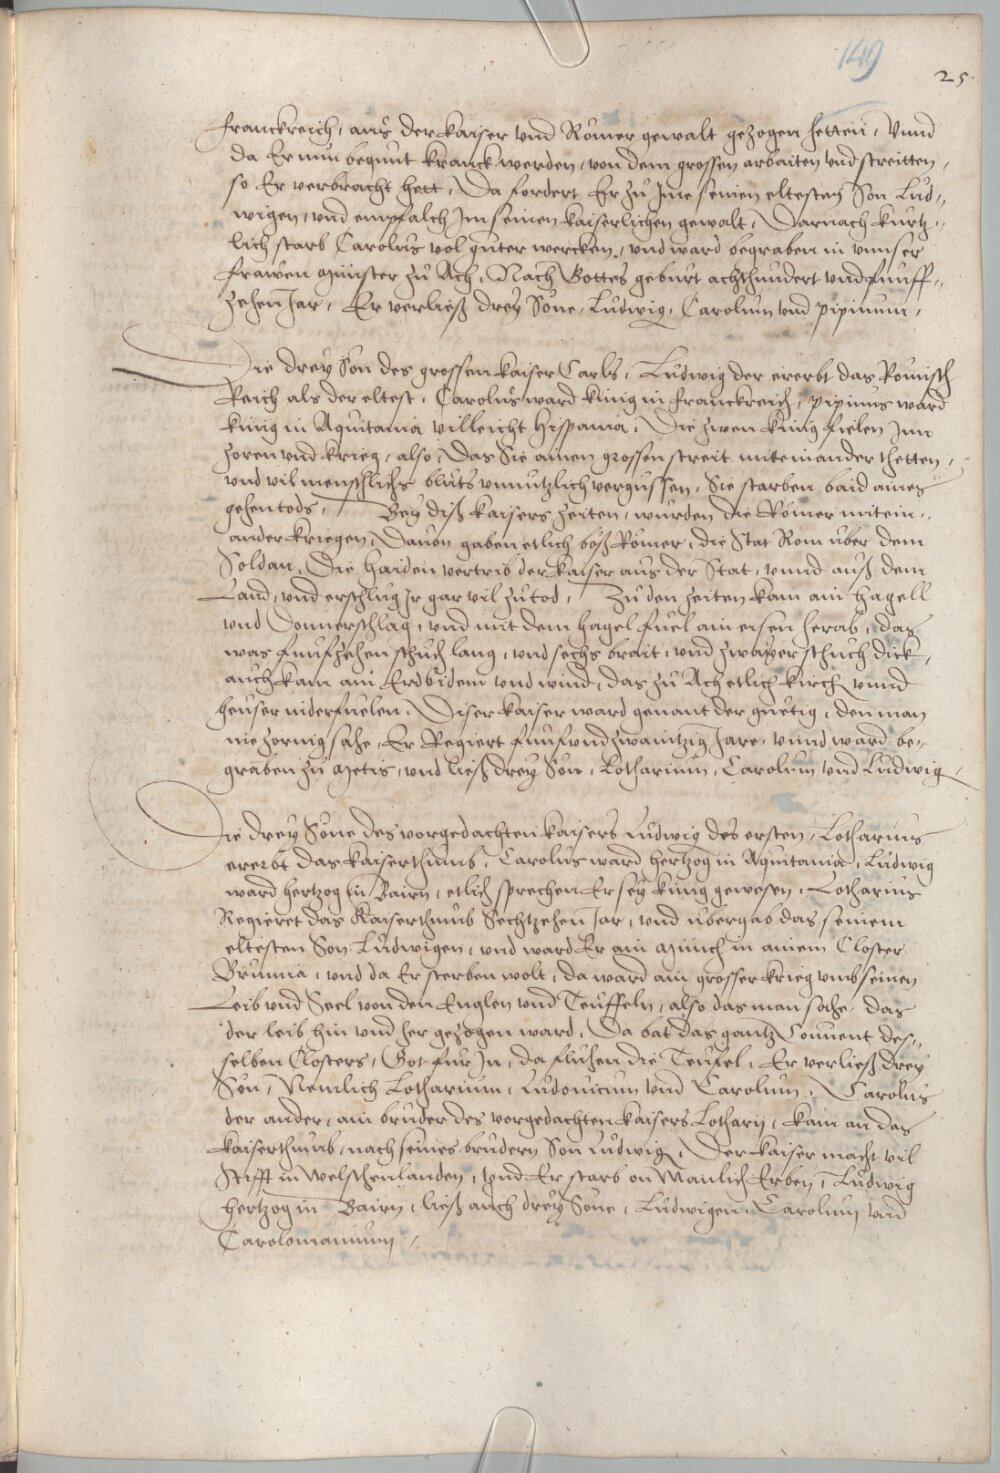 149
25.
franckreich, aus der kaiser vnd Römer gewalt gezogen hetten, Vnnd
da Er nun begunt kranck werden, von dem grossen arbaiten vnd streitten,
so Er verbracht hett, Da fordert Er zu Ime seinen eltesten Son Lud„
wigen, vnd empfalch Im seinen kaiserlichen gewalt, Darnach kurtz„
lich starb Carolus vol guter wercken, vnd ward begraben in vnnser
frawen Münster zu Ach, Nach Gottes geburt achthundert vnd funff„
zehen Jar, Er verließ drey Söne, Ludwig, Carolum vnd Pipinum,
Die drey Son des grossen kaiser Carls, Ludwig der ererbt das Römisch
Reich als der eltest, Carolus ward king in franckreich, Pipinus ward
king in Aquitania villeicht Hispania, Die zwen king fielen Inn
zoren vnd krieg, also, Das Sie ainen grossen streit miteinander thetten,
vnd vil menschlichs bluts vnnutzlich vergussen, Sie starben baid aines
gehen tods, Bey diß kaisers zeiten, wurden die Römer mitein„
ander kriegen, Dauon gaben etlich böß Römer, die Stat Rom vber dem
Soldan, Die haiden vertrib der kaiser aus der Stat, vnnd auß dem
Land, vnd erschlug Ir gar vil zu tod, Zu den zeiten kam ain hagell
vnd Donnerschlag, vnd mit dem hagel fuel ain eisen herab, das
was funfzehen schuch lang, vnd sechs brait, vnd zwayer schuch dick,
auch kam ain Erdbidem vnd wind, das zu Ach etlich kirch vnnd
heuser niderfuelen. Diser kaiser ward genant der guetig, den man
nie zornig sahe, Er Regiert funfvndzwaintzig Jare, vnnd ward be„
graben zu Metis, vnd ließ drey Son, Lotharium, Carolum vnd Ludwig,
Die drey Söne des vorgedachten kaisers Ludwig des ersten, Lotharius
ererbt das kaiserthumb, Carolus ward hertzog in Aquitania, Ludwig
ward hertzog in Bairn, etlich sprechen Er sey king gewesen, Lotharius
Regieret das Kaiserthumb Sechtzehen Jar, vnd vbergab das seinem
eltesten Son Ludwigen, vnd ward Er ain Münch in ainem Closter
Brumia, vnd da Er sterben wolt, da ward ain grosser krieg vmb seinen
Leib vnd Seel von den Englen vnd Teuffeln, also das man sahe, das
der leib hin vnd her gezogen ward, Da bat das gantz Conuent des„
selben Closters, Got fur In, da fluhen die Teufel, Er verließ drey
Son, Nemlich Lotharium, Ludouicum vnd Carolum, Carolus
der ander, ain bruder des vorgedachten kaisers Lotharij, kam an das
kaiserthumb, nach seines brudern Son Ludwig, Der kaiser macht vil
Stifft in Welschenlanden, vnd Er starb on Manlich Erben, Ludwig
hertzog in Bairn, ließ auch drey Söne, Ludwigen, Carolum vnd
Carolomannum,